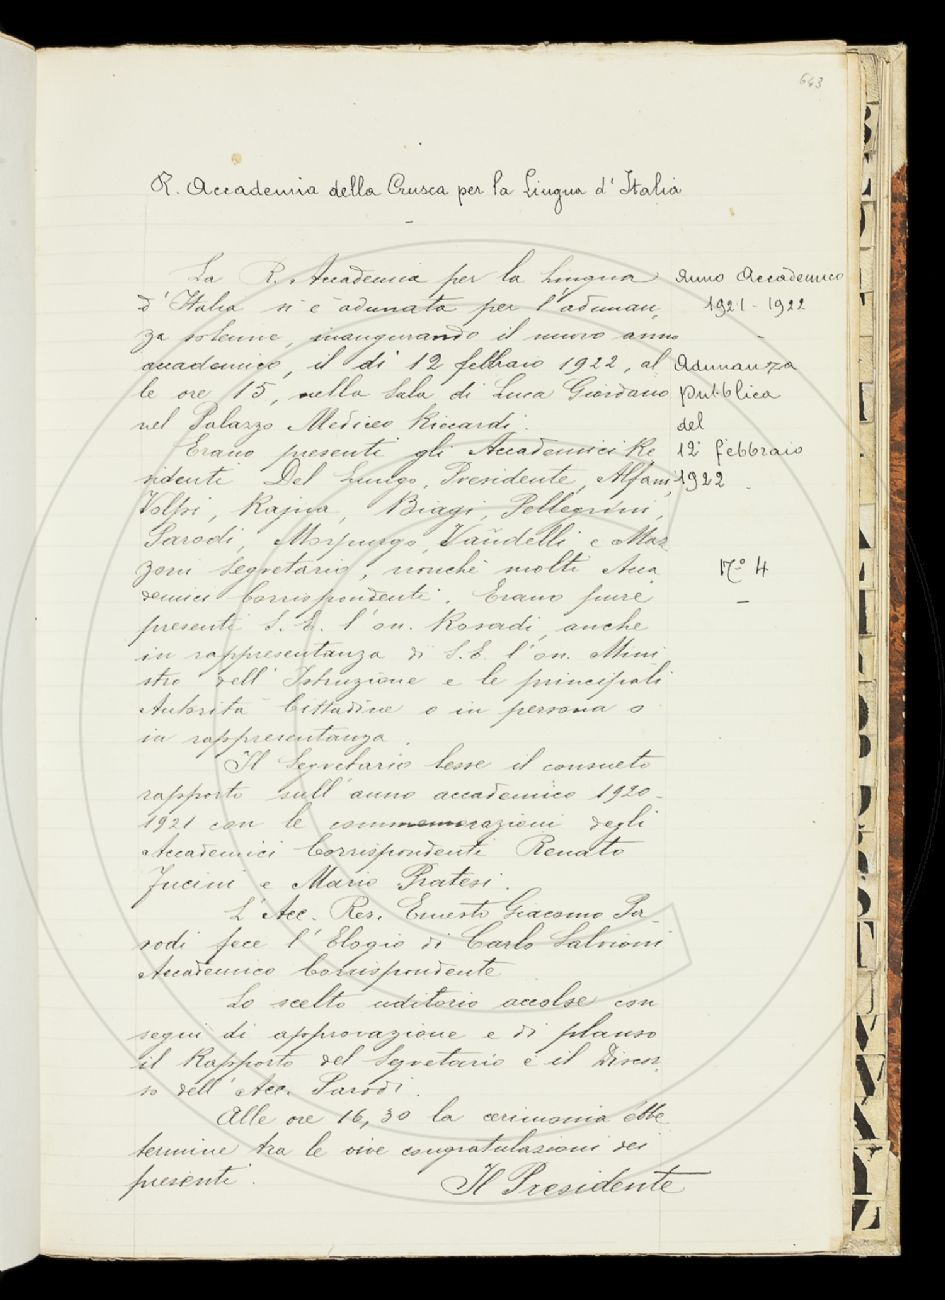 643
R. Accademia della Crusca per la Lingua d' Italia
La R. Accademia per la Lingua
d' Italia si è adunata per l' adunan,
za solenne, inaugurando il nuovo anno
accademico, il di 12 febbraio 1922, al
le ore 15, nella Sala di Luca Giordano
nel Palazzo Mediceo Riccardi.
Erano presenti gli Accademici Re
sidenti Del Lungo, Presidente, Alfani,
Volpi, Rajna, Biagi, Pellegrini,
Parodi, Morpurgo, Vandelli e Maz
zoni Segretario, nonchè molti Acca
demici Corrispondenti. Erano pure
presenti S. E. l' on. Rosadi, anche
in rappresentanza di S. E. l' on. Mini
stro dell' Istruzione e le principali
Autorità Cittadine o in persona o
in rappresentanza.
Il Segretario lesse il consueto
rapporto sull' anno accademico 1920-
1921 con le commemorazioni degli
Accademici Corrispondenti Renato
Fucini e Mario Pratesi.
L' Acc. Res. Ernesto Giacomo Pa-
rodi fece l' Elogio di Carlo Salvioni
Accademico Corrispondente.
Lo scelto uditorio accolse con
segni di approvazione e di plauso
il Rapporto del Segretario e il Discor,
so dell' Acc. Parodi.
Alle ore 16,30 la cerimonia ebbe
termine tra le vive congratulazioni dei
presenti.
Il Presidente
Anno Accademico
1921 - 1922
Adunanza
pubblica
del
12 febbraio
1922
N.º 4